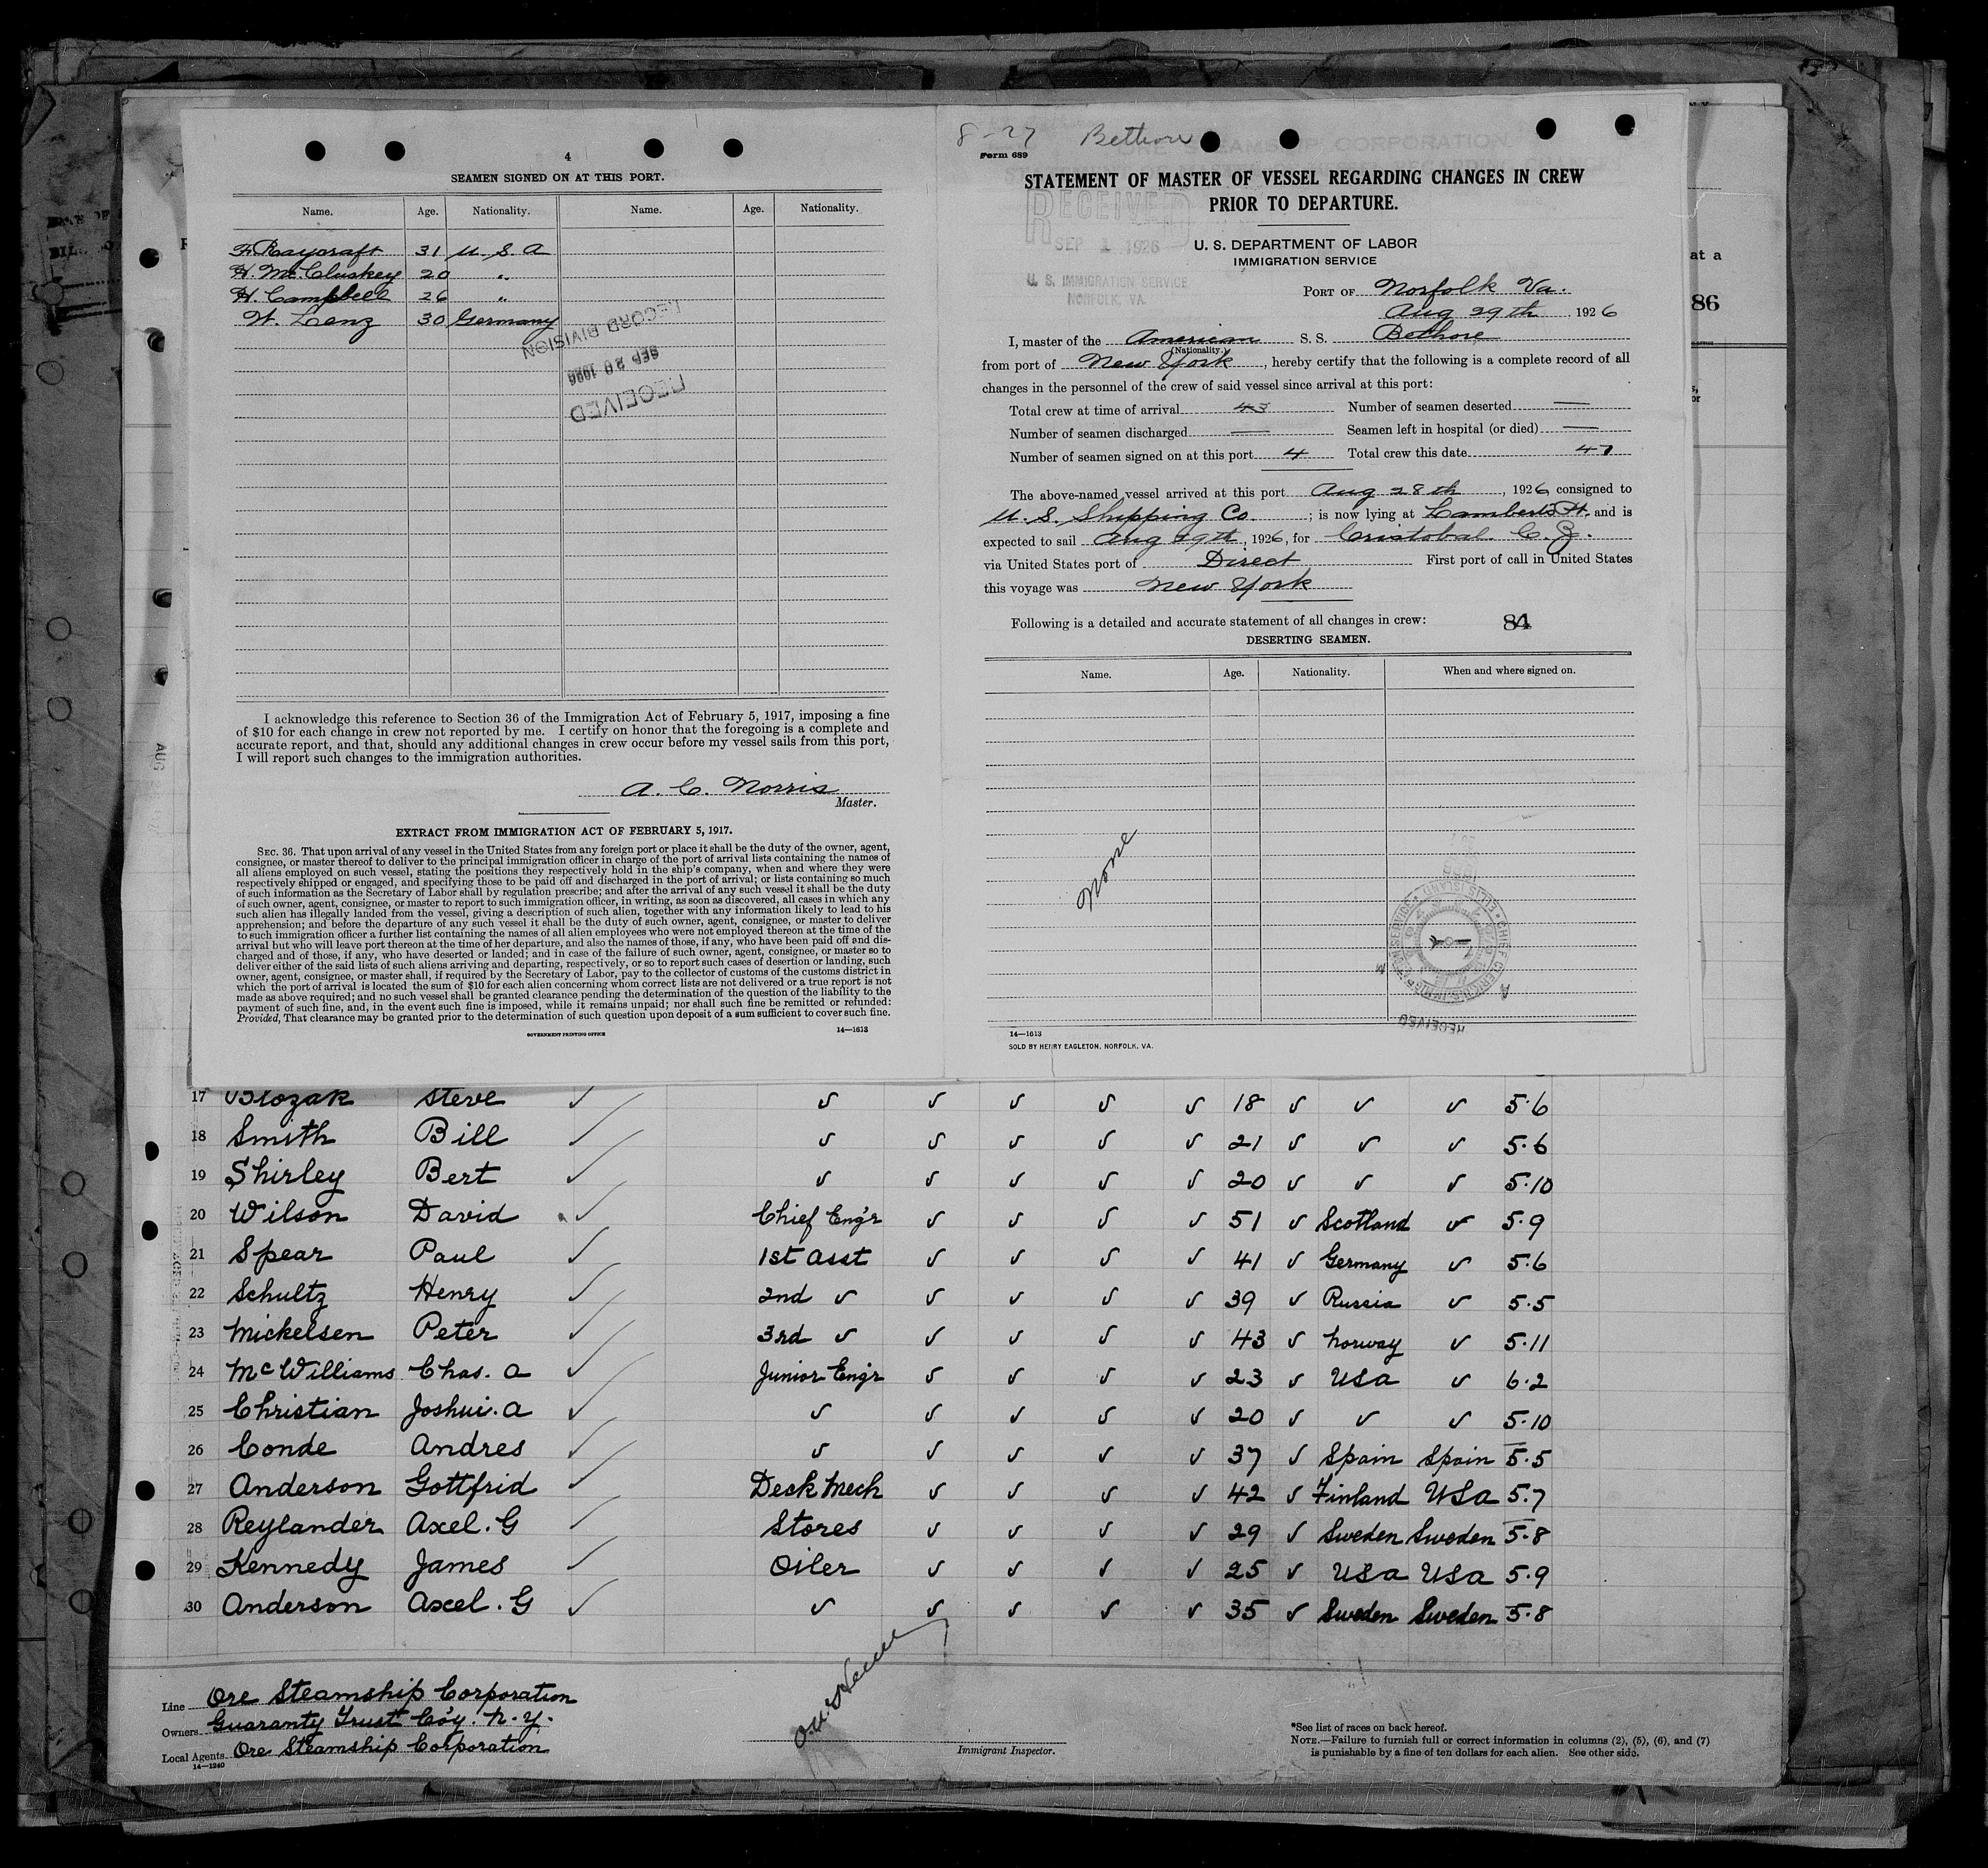 4
SEAMEN SIGNED ON AT THIS PORT.
Name. Age. Nationality. Name. Age. Nationality.
F. Raycraft 31 U. S. A
H. McCluskey 20 "
H. Campbell 26 "
W. Lenz 30 Germany
RECORD DIVISION
SEP 20 1926
RECEIVED
I acknowledge this reference to Section 36 of the Immigration Act of February 5, 1917, imposing a fine
of $10 for each change in crew not reported by me. I certify on honor that the foregoing is a complete and
accurate report, and that, should any additional changes in crew occur before my vessel sails from this port,
I will report such changes to the immigration authorities.
A. C. Norris
Master.
EXTRACT FROM IMMIGRATION ACT OF FEBRUARY 5, 1917.
SEC. 36. That upon arrival of any vessel in the United States from any foreign port or place it shall be the duty of the owner, agent,
consignee, or master thereof to deliver to the principal immigration officer in charge of the port of arrival lists containing the names of
all aliens employed on such vessel, stating the positions they respectively hold in the ship's company, when and where they were
respectively shipped or engaged, and specifying those to be paid off and discharged in the port of arrival; or lists containing so much
of such information as the Secretary of Labor shall by regulation prescribe; and after the arrival of any such vessel it shall be the duty
of such owner, agent, consignee, or master to report to such immigration officer, in writing, as soon as discovered, all cases in which any
such alien has illegally landed from the vessel, giving a description of such alien, together with any information likely to lead to his
apprehension; and before the departure of any such vessel it shall be the duty of such owner, agent, consignee, or master to deliver
to such immigration officer a further list containing the names of all alien employees who were not employed thereon at the time of the
arrival but who will leave port thereon at the time of her departure, and also the names of those, if any, who have been paid off and dis-
charged and of those, if any, who have deserted or landed; and in case of the failure of such owner, agent, consignee, or master so to
deliver either of the said lists of such aliens arriving and departing, respectively, or so to report such cases of desertion or landing, such
owner, agent, consignee, or master shall, if required by the Secretary of Labor, pay to the collector of customs of the customs district in
which the port of arrival is located the sum of $10 for each alien concerning whom correct lists are not delivered or a true report is not
made as above required; and no such vessel shall be granted clearance pending the determination of the question of the liability to the
payment of such fine, and, in the event such fine is imposed, while it remains unpaid; nor shall such fine be remitted or refunded:
Provided, That clearance may be granted prior to the determination of such question upon deposit of a sum sufficient to cover such fine.
GOVERNMENT PRINTING OFFICE 14—1613
8-27 Bethore
Form 689
STATEMENT OF MASTER OF VESSEL REGARDING CHANGES IN CREW
PRIOR TO DEPARTURE.
RECEIVED
SEP 1 1926
U. S. IMMIGRATION SERVICE
NORFOLK, VA.
U. S. DEPARTMENT OF LABOR
IMMIGRATION SERVICE
PORT OF Norfolk Va.
Aug 29th, 1926
I, master of the American S. S. Bethore
(Nationality.)
from port of New York, hereby certify that the following is a complete record of all
changes in the personnel of the crew of said vessel since arrival at this port:
Total crew at time of arrival 43 Number of seamen deserted —
Number of seamen discharged — Seamen left in hospital (or died) —
Number of seamen signed on at this port 4 Total crew this date 47
The above-named vessel arrived at this port Aug 28th, 1926 consigned to
U. S. Shipping Co.; is now lying at Lamberts Pt. and is
expected to sail Aug 29th, 1926, for Cristobal. C. Z.
via United States port of Direct First port of call in United States
this voyage was New York
Following is a detailed and accurate statement of all changes in crew: 84
DESERTING SEAMEN.
Name. Age. Nationality. When and where signed on.
None
RECEIVED
14—1613
SOLD BY HENRY EAGLETON, NORFOLK, VA.
at a
86
AUG
17 Blozak Steve ✓ ✓ ✓ ✓ ✓ ✓ 18 ✓ ✓ ✓ 5.6
18 Smith Bill ✓ ✓ ✓ ✓ ✓ ✓ 21 ✓ ✓ ✓ 5.6
19 Shirley Bert ✓ ✓ ✓ ✓ ✓ ✓ 20 ✓ ✓ ✓ 5.10
20 Wilson David ✓ Chief Eng'r ✓ ✓ ✓ ✓ 51 ✓ Scotland ✓ 5.9
21 Spear Paul ✓ 1st Asst ✓ ✓ ✓ ✓ 41 ✓ Germany ✓ 5.6
22 Schultz Henry ✓ 2nd ✓ ✓ ✓ ✓ ✓ 39 ✓ Russia ✓ 5.5
23 Mickelsen Peter ✓ 3rd ✓ ✓ ✓ ✓ ✓ 43 ✓ Norway ✓ 5.11
24 McWilliams Chas. A ✓ Junior Eng'r ✓ ✓ ✓ ✓ 23 ✓ USA ✓ 6.2
25 Christian Joshui. A ✓ ✓ ✓ ✓ ✓ ✓ 20 ✓ ✓ ✓ 5.10
26 Conde Andres ✓ ✓ ✓ ✓ ✓ ✓ 37 ✓ Spain Spain 5.5
27 Anderson Gottfrid ✓ Deck Mech ✓ ✓ ✓ ✓ 42 ✓ Finland USA 5.7
28 Reylander Axel. G ✓ Stores ✓ ✓ ✓ ✓ 29 ✓ Sweden Sweden 5.8
29 Kennedy James ✓ Oiler ✓ ✓ ✓ ✓ 25 ✓ USA USA 5.9
30 Anderson Axel. G ✓ ✓ ✓ ✓ ✓ ✓ 35 ✓ Sweden Sweden 5.8
Line Ore Steamship Corporation
Owners Guaranty Trust Co'y. N.Y.
Local Agents Ore Steamship Corporation
14—1240
Immigrant Inspector.
*See list of races on back hereof.
NOTE.—Failure to furnish full or correct information in columns (2), (5), (6), and (7)
is punishable by a fine of ten dollars for each alien. See other side.